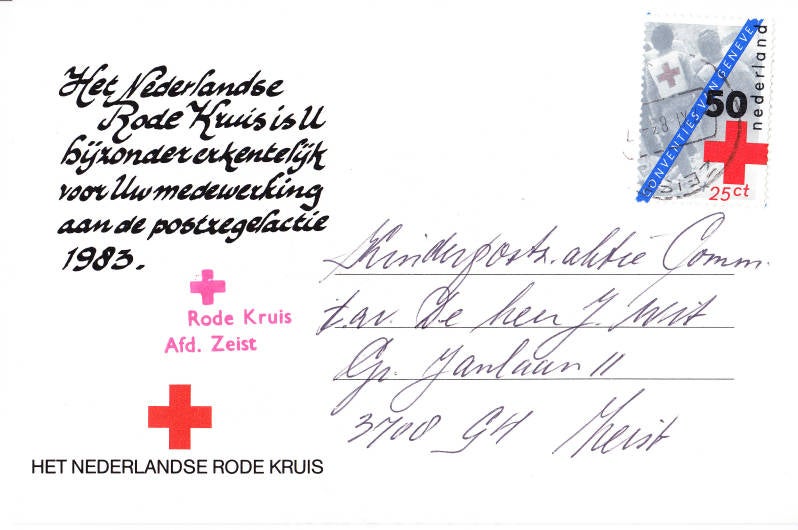 Het Nederlandse
Rode Kruis is U
bijzonder erkentelijk
voor Uw medewerking
aan de postzegelactie
1983.
CONVENTIES VAN GENEVE
nederland
50
25ct
ZEIST
Rode Kruis
Afd. Zeist
HET NEDERLANDSE RODE KRUIS
Kinderpostz. aktie Comm.
t.av. De heer J. Wit
Gr. Janlaan 11
3708 GH Zeist